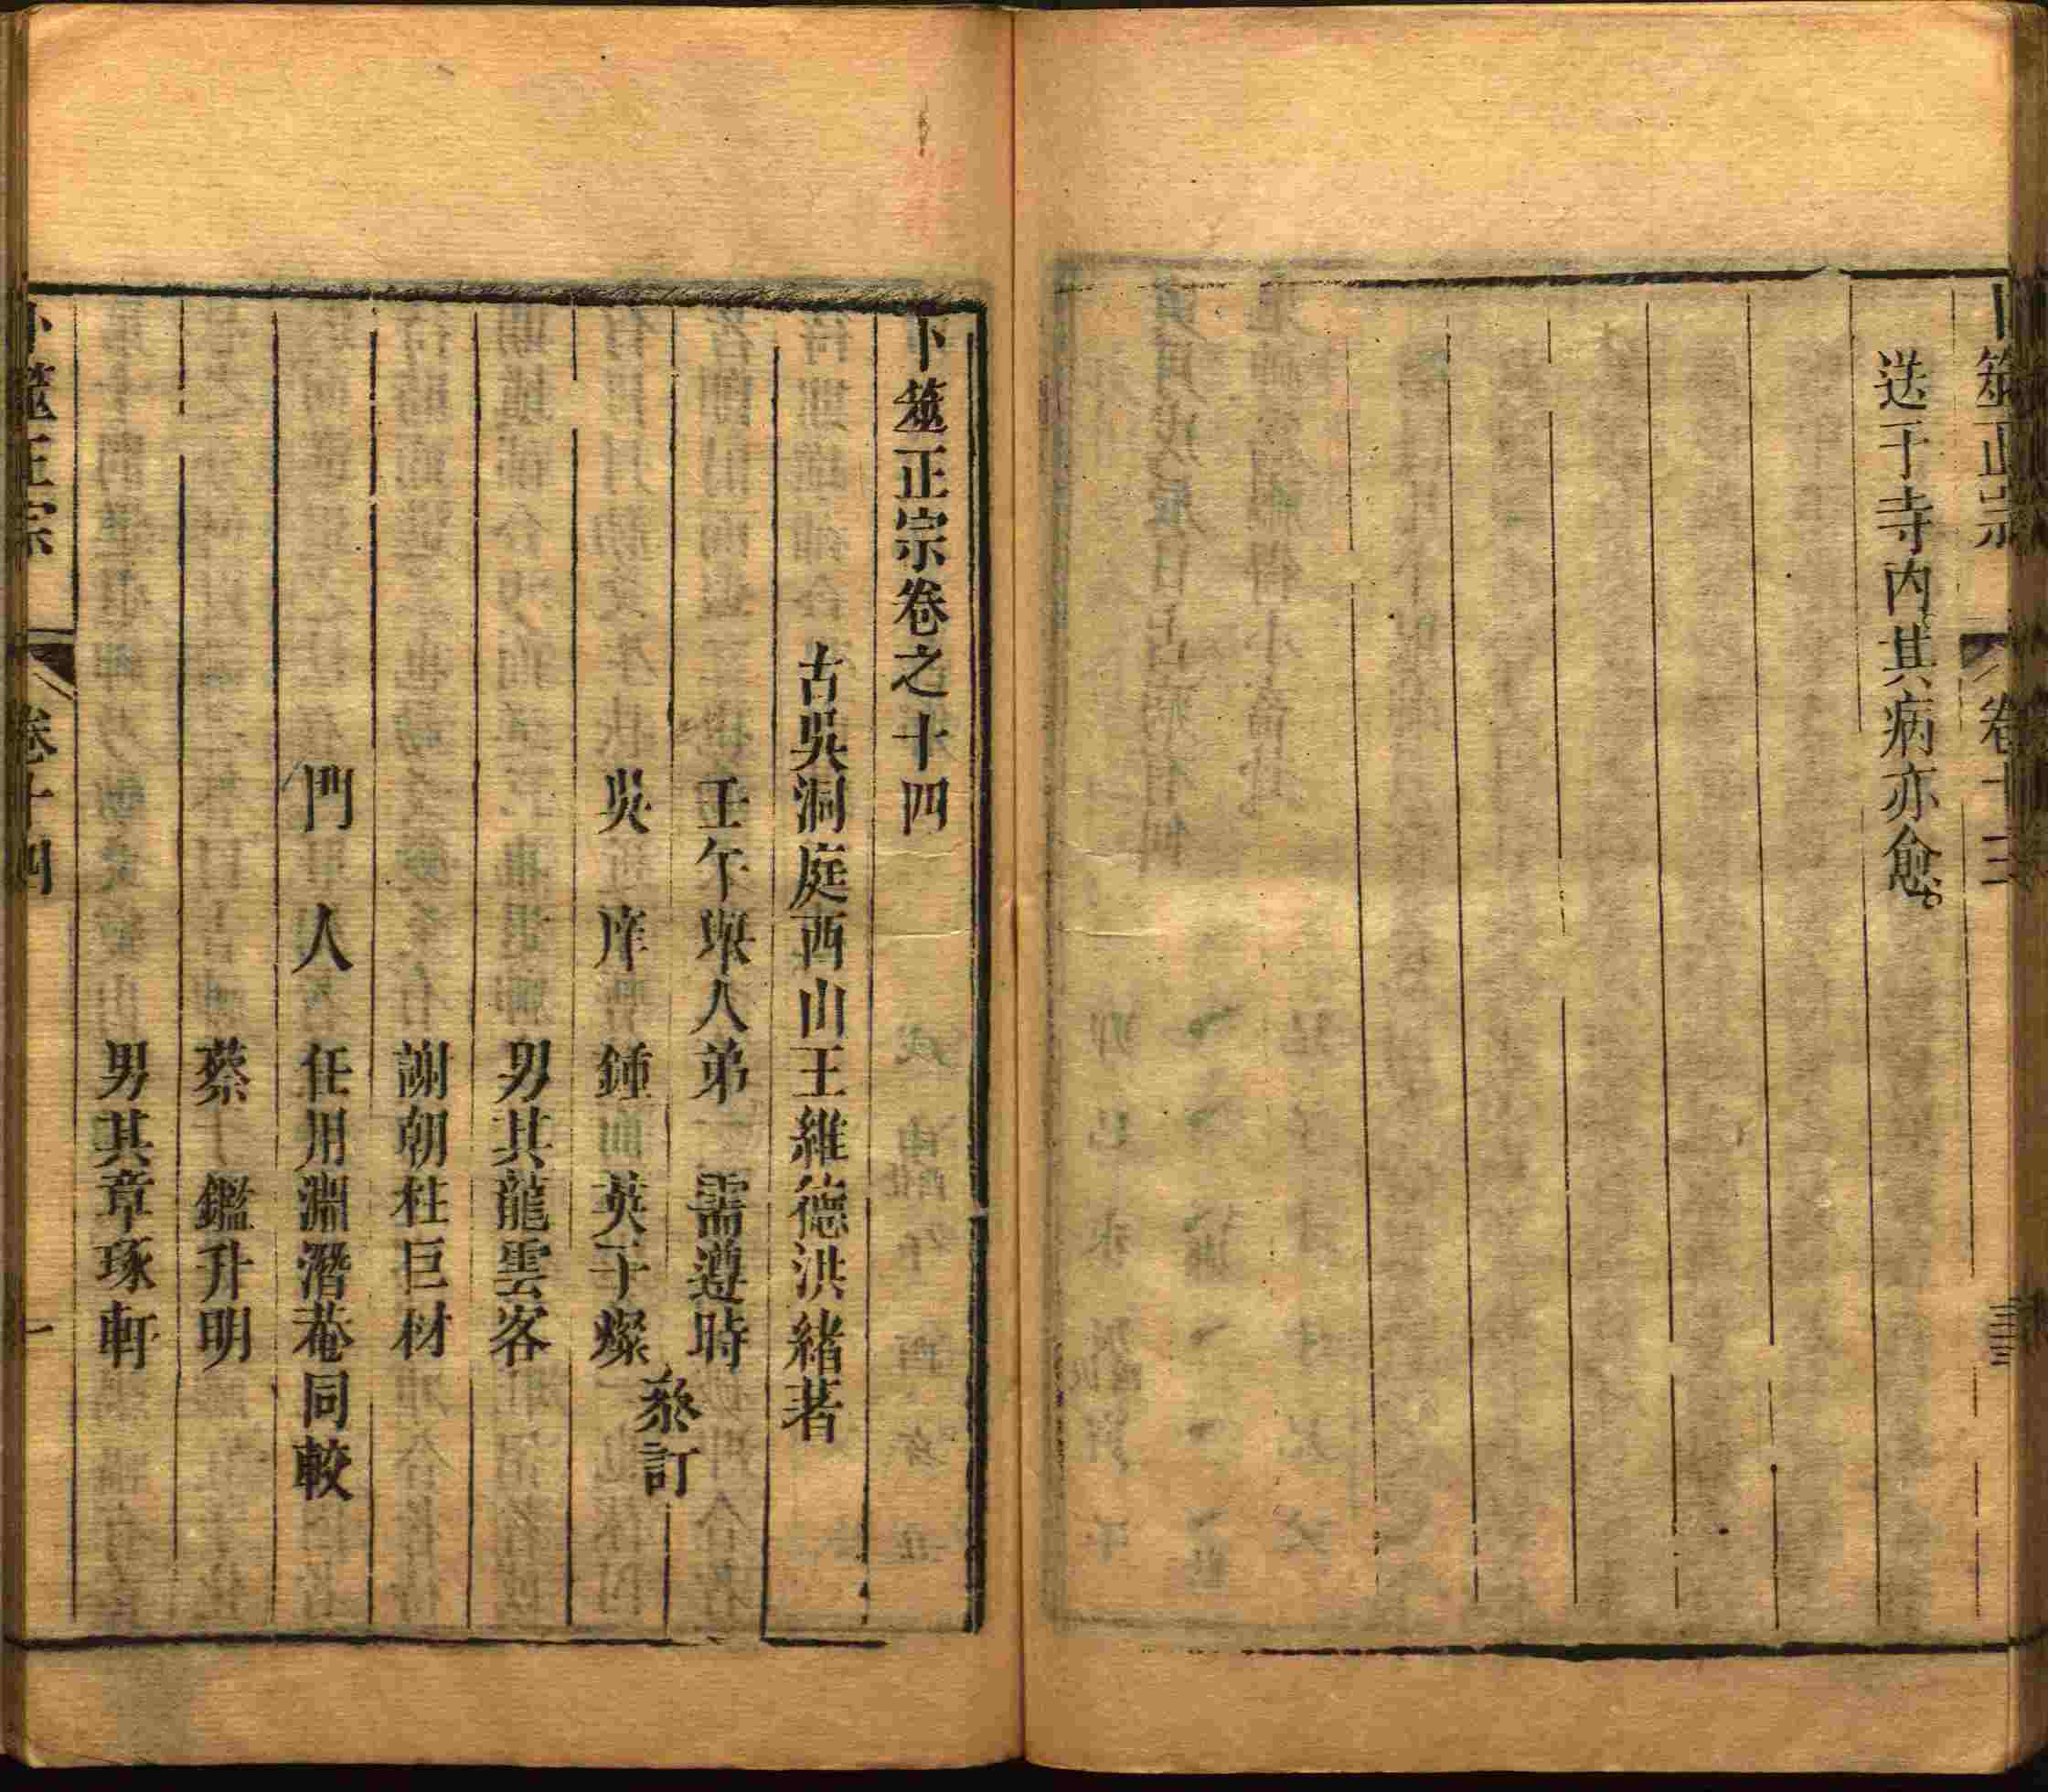 卜筮正宗 卷十三
送于寺内其病亦愈。
卜筮正宗卷之十四
古吳洞庭西山王維德洪緒著
壬午舉人弟 需遵時
吳庠 鍾 英千燦
叅訂
男其龍雲客
謝朝柱巨材
門人 任用淵潛菴同較
蔡 鑑升明
男其章琢軒
卜筮正宗 卷十四 一